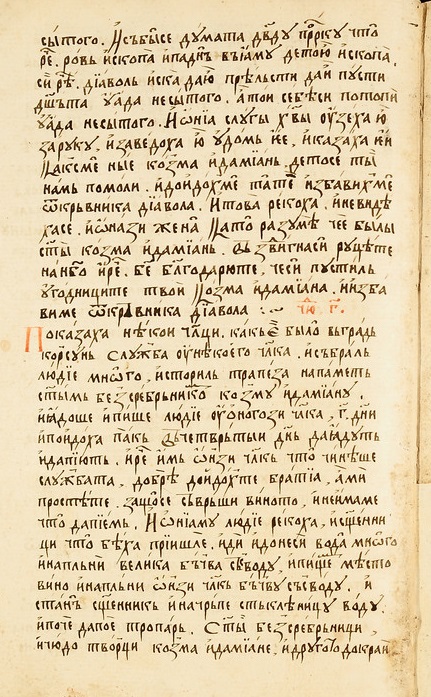 сытого. И събысе думата дв҃ду прⷪ҇рку что
рⷱ҇е. ровь ископа и паднь въ іаму детою ископа.
сїи рⷱ҇е. дїаволь иска даю прѣльсти даи пусти
дш҃ъта у ада несытого. а тои себѣси потопи
у ада несытого. И ѡнїа слугы х҃вы оузеха ю
за руку. и заведоха ю удомь ѝе. и казаха ѝи
Нїе смѐ ные козма и дамїань. детосе ты
намь помоли. и доидохме та те избавихме
ѿ кръвника дїавола. И това рекоха. и невидѣ
хасе. и ѡнази жена Пато разумѣ чее былы
ст҃ы козма и дамїань. Въздвигнаси руцѣте
на нб҃о и рⷱ҇е. Бе благодарюте, чеси пустиль
угодниците твои Козма и дамїана. и изба
виме ѿ кръвника дїавола :~ чю҃. г҃.
Показаха нѣкои чл҃ци. какьве было въ градь
корсунь служба оу нѣкоего чл҃ка. и събраль
людїе много. и сториль трапеза на паметь
ст҃ымь безсребрьникѡ козму и дамїану.
и ꙗдоше и пише людїе оу ѡногози чл҃ка, г҃. дни
и поидоха пакь въ четврьтыи днь да ꙗдуть
и да пїють. и рⷱ҇е имь ѡнзи чл҃кь что чинѣше
службата, добрѣ доидохте братїа, ами
простѣте. защосе съврьши виното, и неимаме
что да пїемь. И ѡнїаму людїе рекоха, и сщ҃енни
ци что бѣха пришле. иди и донеси вода много
и напльни велика бъчва съ воду. и пише мѣсто
вино и напльни ѡнзи чл҃кь бъчву съсводу. и
стань сщ҃енникь и начрьпе стькленицу воду.
и поче да пое тропарь. Ст҃ы безсребрьници,
и чюдо творци козма и дамїане. и другото до краи